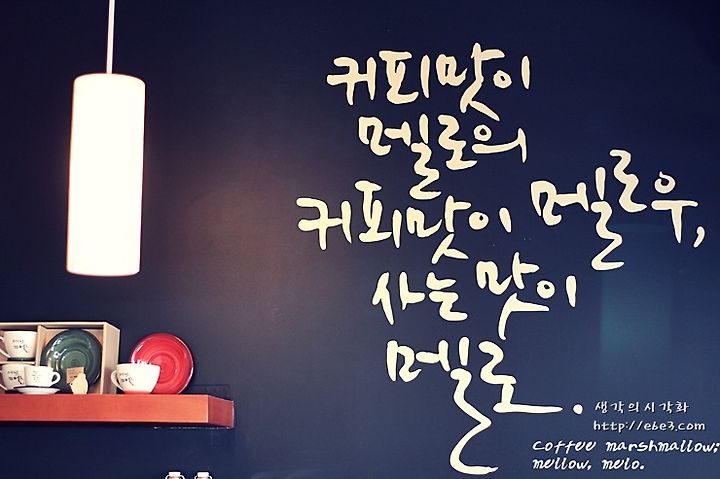 커피맛이
멜로의
커피맛이 멜로우,
사는 맛이
멜로.
생각의시각화
http://ebe3.com
Coffee marshmallow;
mellow, melo.